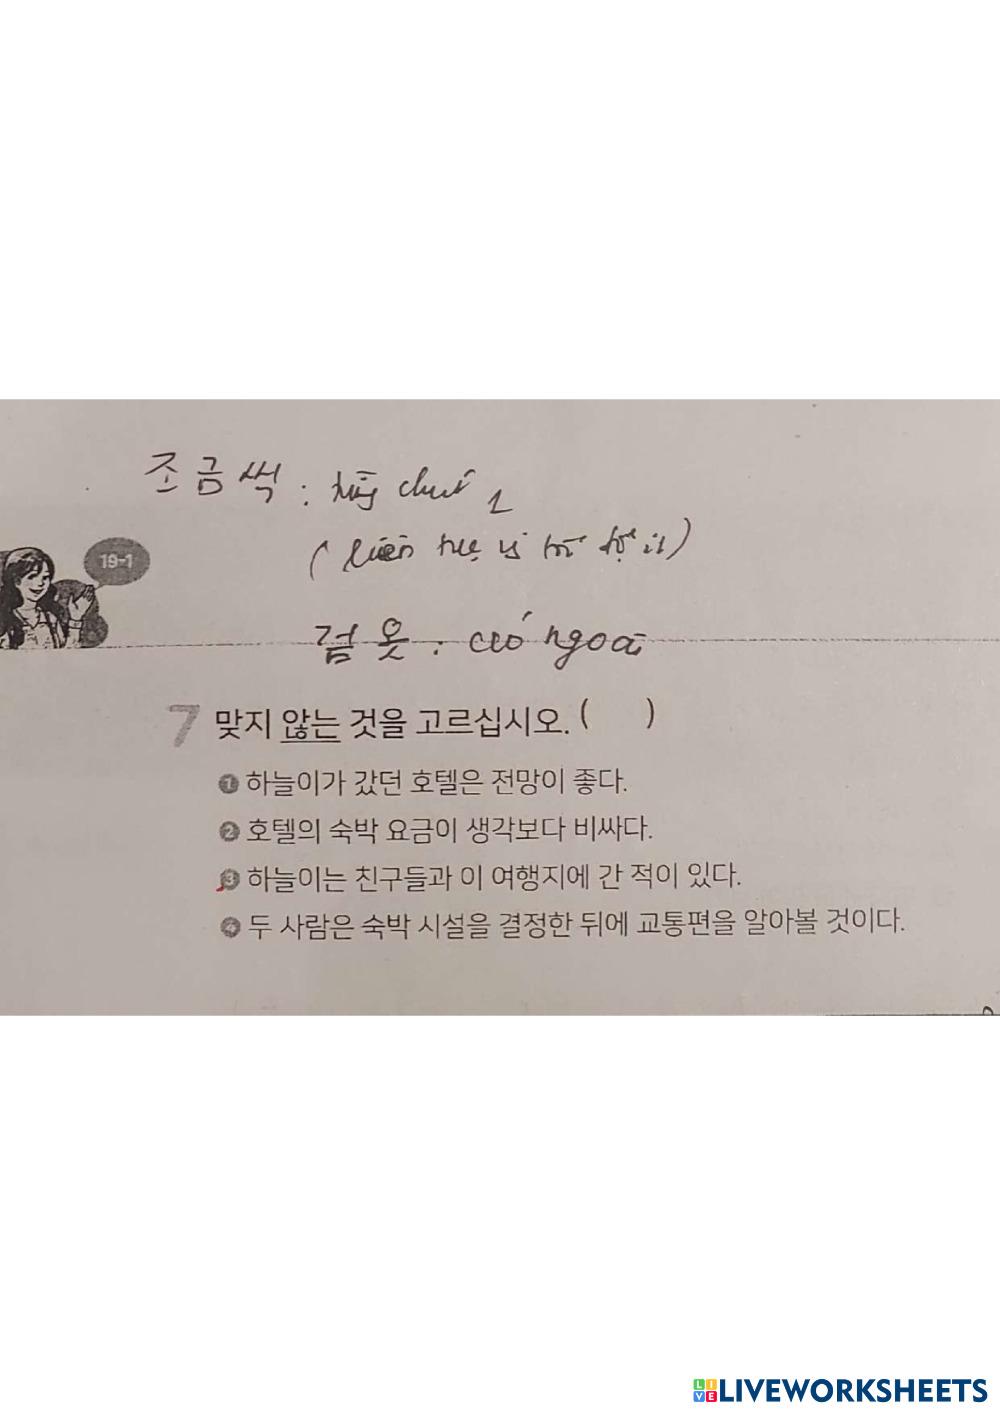 조금씩 : từng chút 1
19-1
겉옷 : áo ngoài
7 맞지 않는 것을 고르십시오. ( )
1 하늘이가 갔던 호텔은 전망이 좋다.
2 호텔의 숙박 요금이 생각보다 비싸다.
3 하늘이는 친구들과 이 여행지에 간 적이 있다.
4 두 사람은 숙박 시설을 결정한 뒤에 교통편을 알아볼 것이다.
LIVE LIVEWORKSHEETS